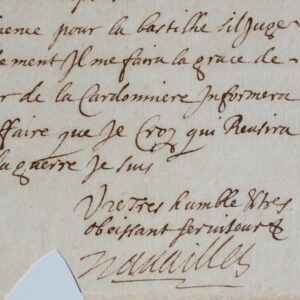 uenu pour la bastille sil Juge
lement Il me faira la grace de
r de la Cardonniere Informera
ffaire que Je Croy qui Reusira
la guerre Je suis
Vre Tres humble & tres
obeissant seruiteur &
Nauailles